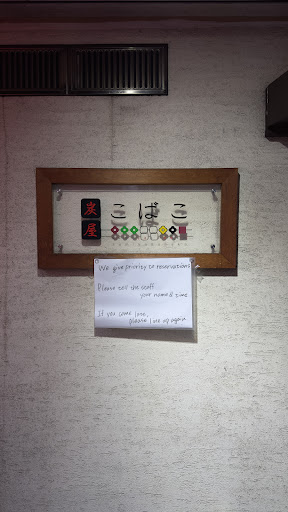 炭屋 こばこ
We give priority to reservations
Please tell the staff
your name & time
If you come late,
please line up again